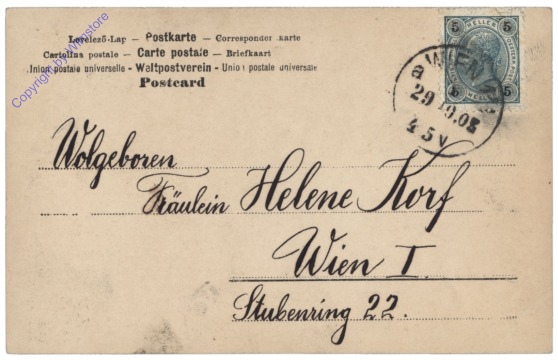 Levelező-Lap – Postkarte – Correspondenzkarte
Cartolina postale – Carte postale – Briefkaart
Union postale universelle – Weltpostverein – Union postale universale
Postcard
5 5
HELLER HELLER
5 5
a WIEN
29.10.03
4 5 V
Wolgeboren
Fräulein Helene Korf
Wien I
Stubenring 22.
Copyright by Wienstore